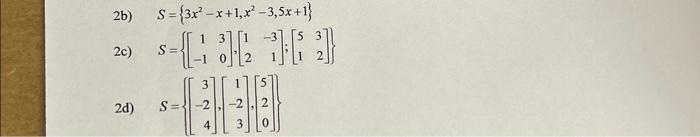 2b) S = {3x² − x + 1, x² − 3, 5x + 1}
2c) S = {[1 3; −1 0], [1 −3; 2 1]; [5 3; 1 2]}
2d) S = {[3; −2; 4], [1; −2; 3], [5; 2; 0]}